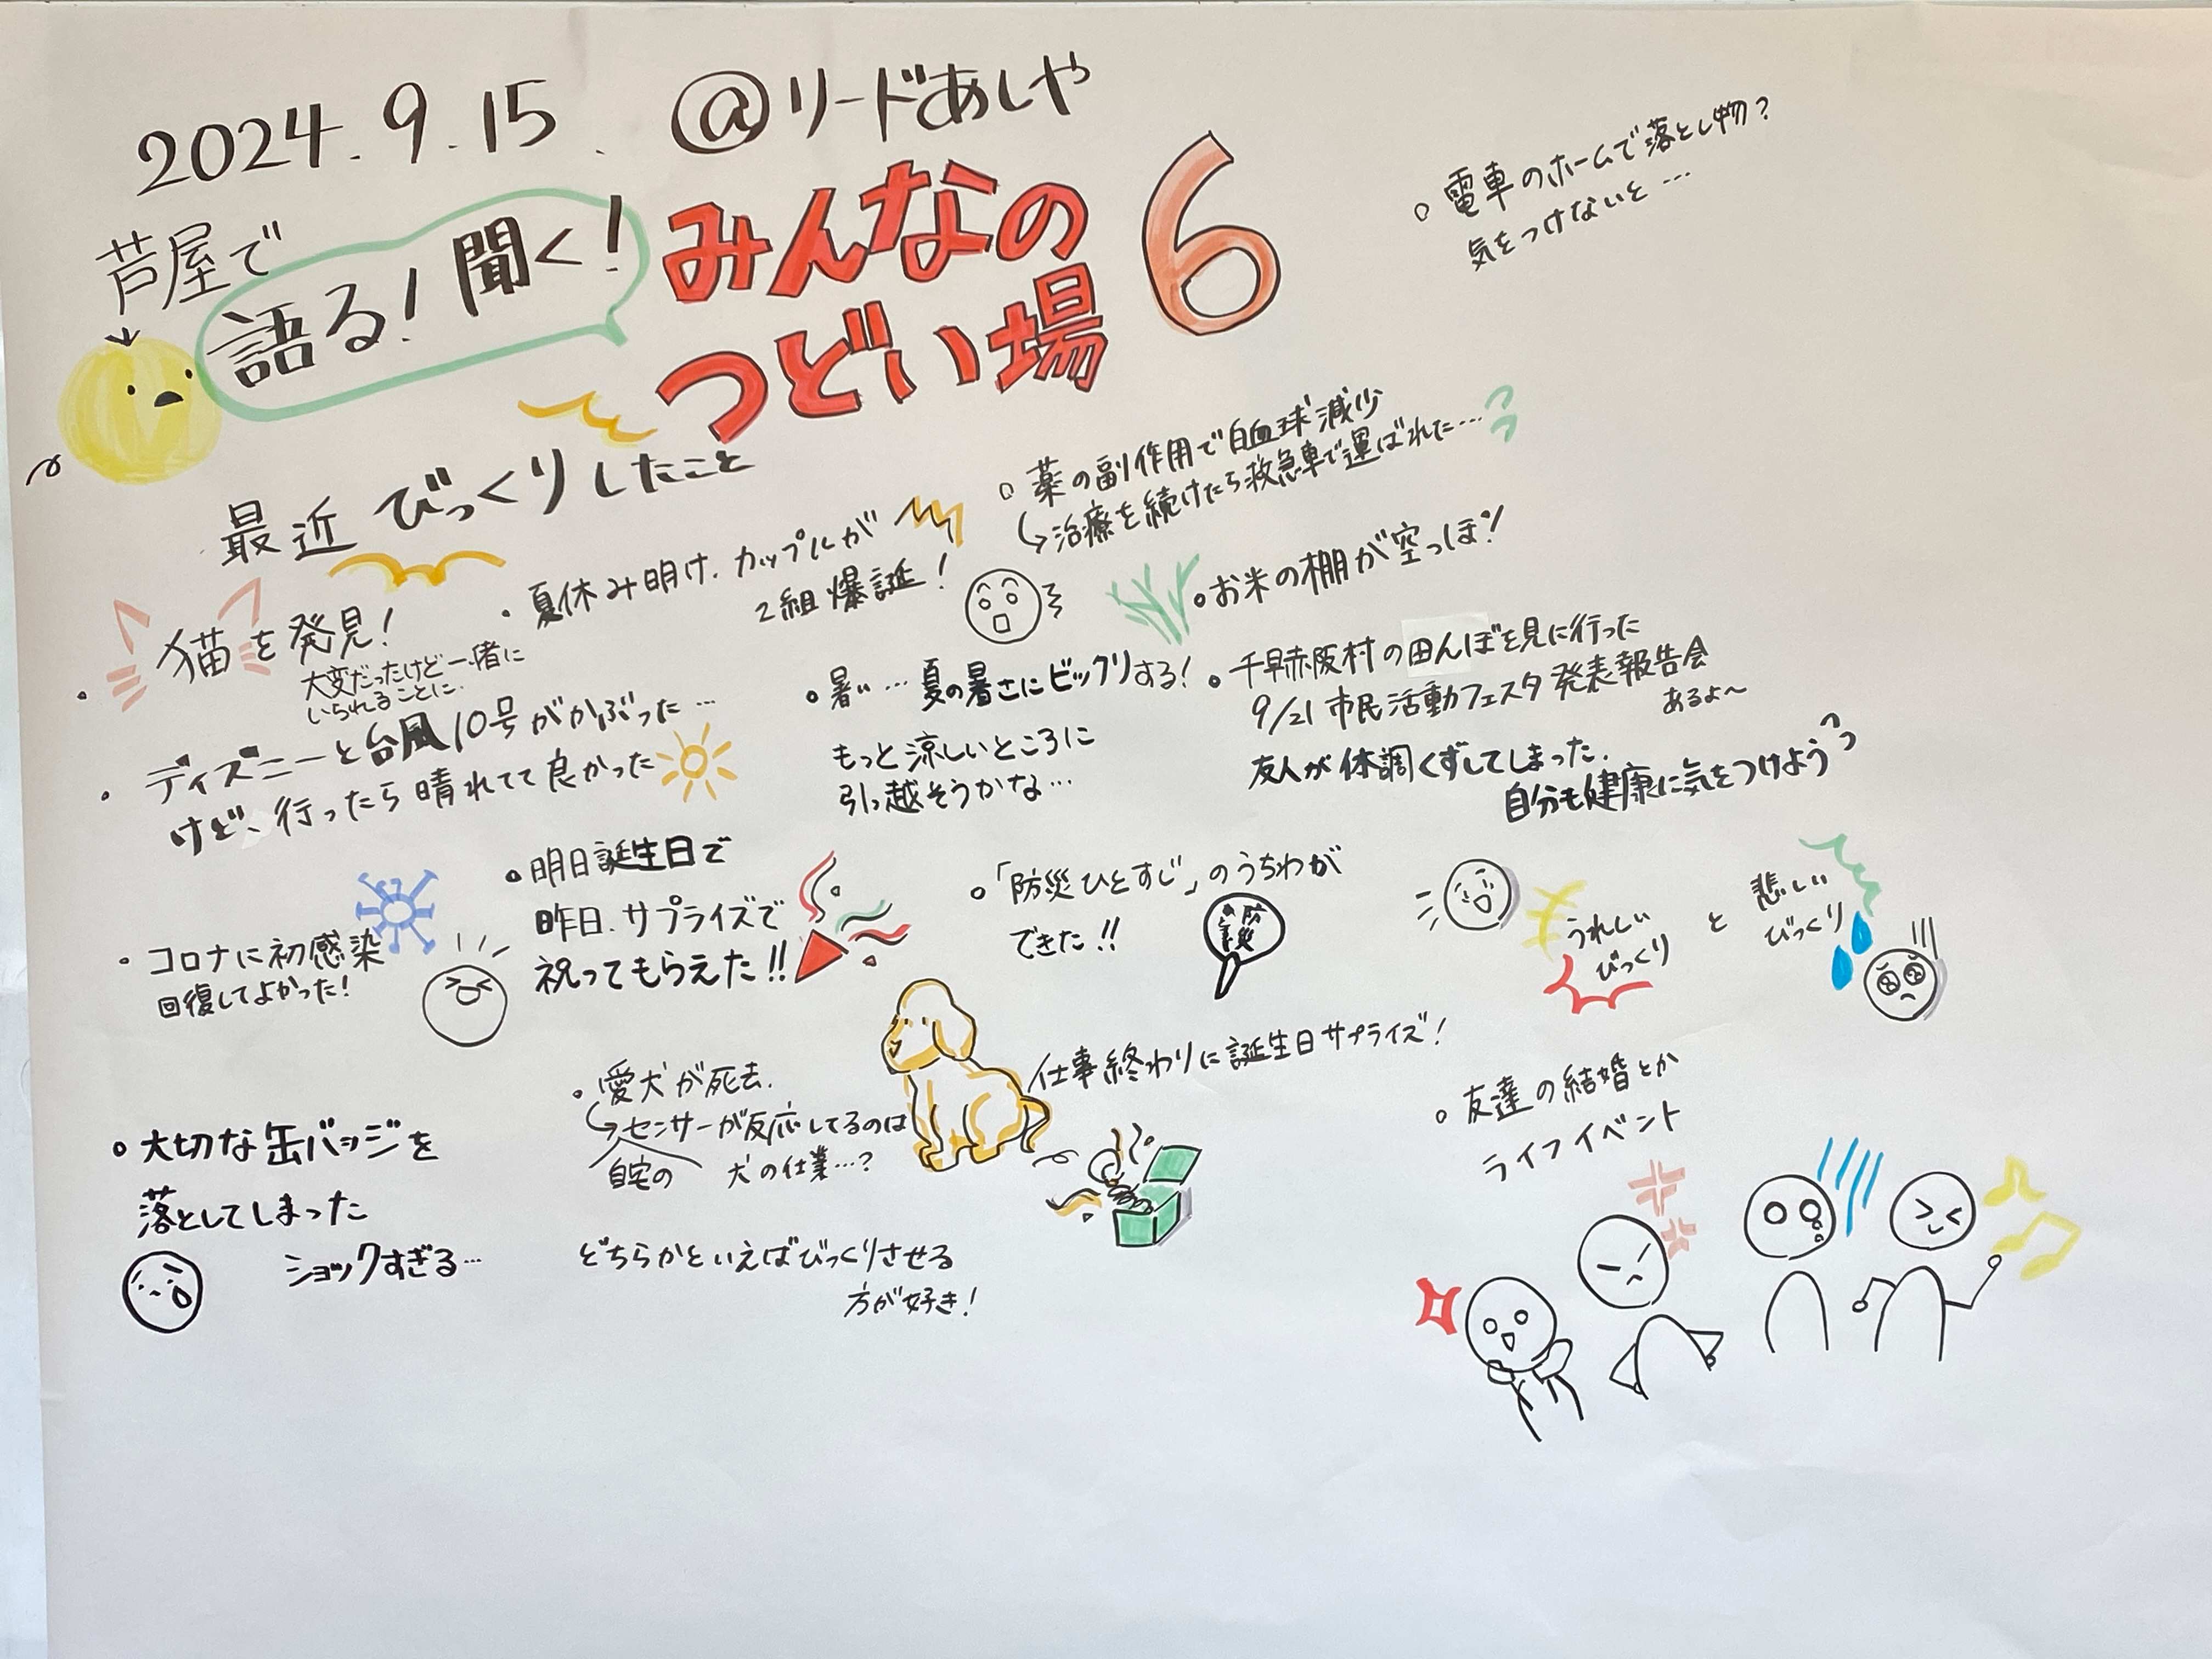 2024.9.15. @リードあしや
芦屋で
語る!聞く!
みんなの
つどい場
6
最近 びっくりしたこと
・猫を発見!
大変だったけど一緒に
いられることに.
・夏休み明け.カップルが
2組爆誕!
・ディズニーと台風10号がかぶった…
けど、行ったら晴れてて良かった
・コロナに初感染
回復してよかった!
・明日誕生日で
昨日.サプライズで
祝ってもらえた!!
・大切な缶バッジを
落としてしまった
ショックすぎる…
・愛犬が死去.
↪センサーが反応してるのは
自宅の 犬の仕業…?
どちらかといえばびっくりさせる
方が好き!
・薬の副作用で白血球減少
↪治療を続けたら救急車で運ばれた…
・お米の棚が空っぽ!
・暑い…夏の暑さにビックリする!
もっと涼しいところに
引っ越そうかな…
・千早赤阪村の田んぼを見に行った
9/21 市民活動フェスタ発表報告会
あるよ〜
友人が体調くずしてしまった.
自分も健康に気をつけようっっ
・「防災ひとすじ」のうちわが
できた!!
防災
仕事終わりに誕生日サプライズ!
・電車のホームで落とし物?
気をつけないと…
うれしい
びっくり
と
悲しい
びっくり
・友達の結婚とか
ライフイベント